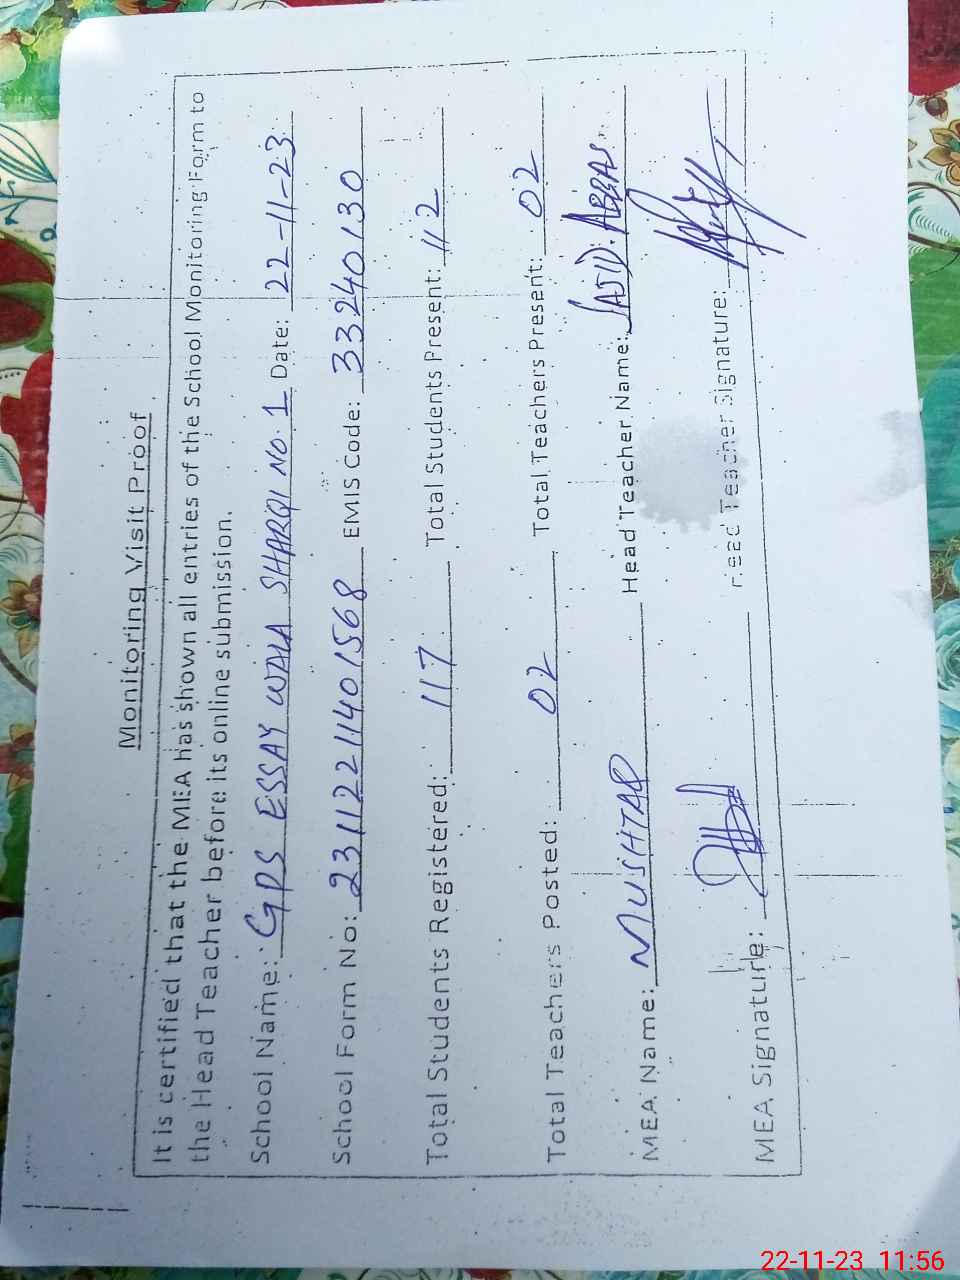 Monitoring Visit Proof
It is certified that the MEA has shown all entries of the School Monitoring Form to
the Head Teacher before its online submission.
School Name: GPS ESSAY WALA SHARQI NO. 1 Date: 22-11-23
School Form No: 23112211401568 EMIS Code: 33240130
Total Students Registered: 117 Total Students Present: 112
Total Teachers Posted: 02 Total Teachers Present: 02
MEA Name: MUSHTAQ Head Teacher Name: SAJID. ABBAS.
MEA Signature: Head Teacher Signature:
22-11-23 11:56